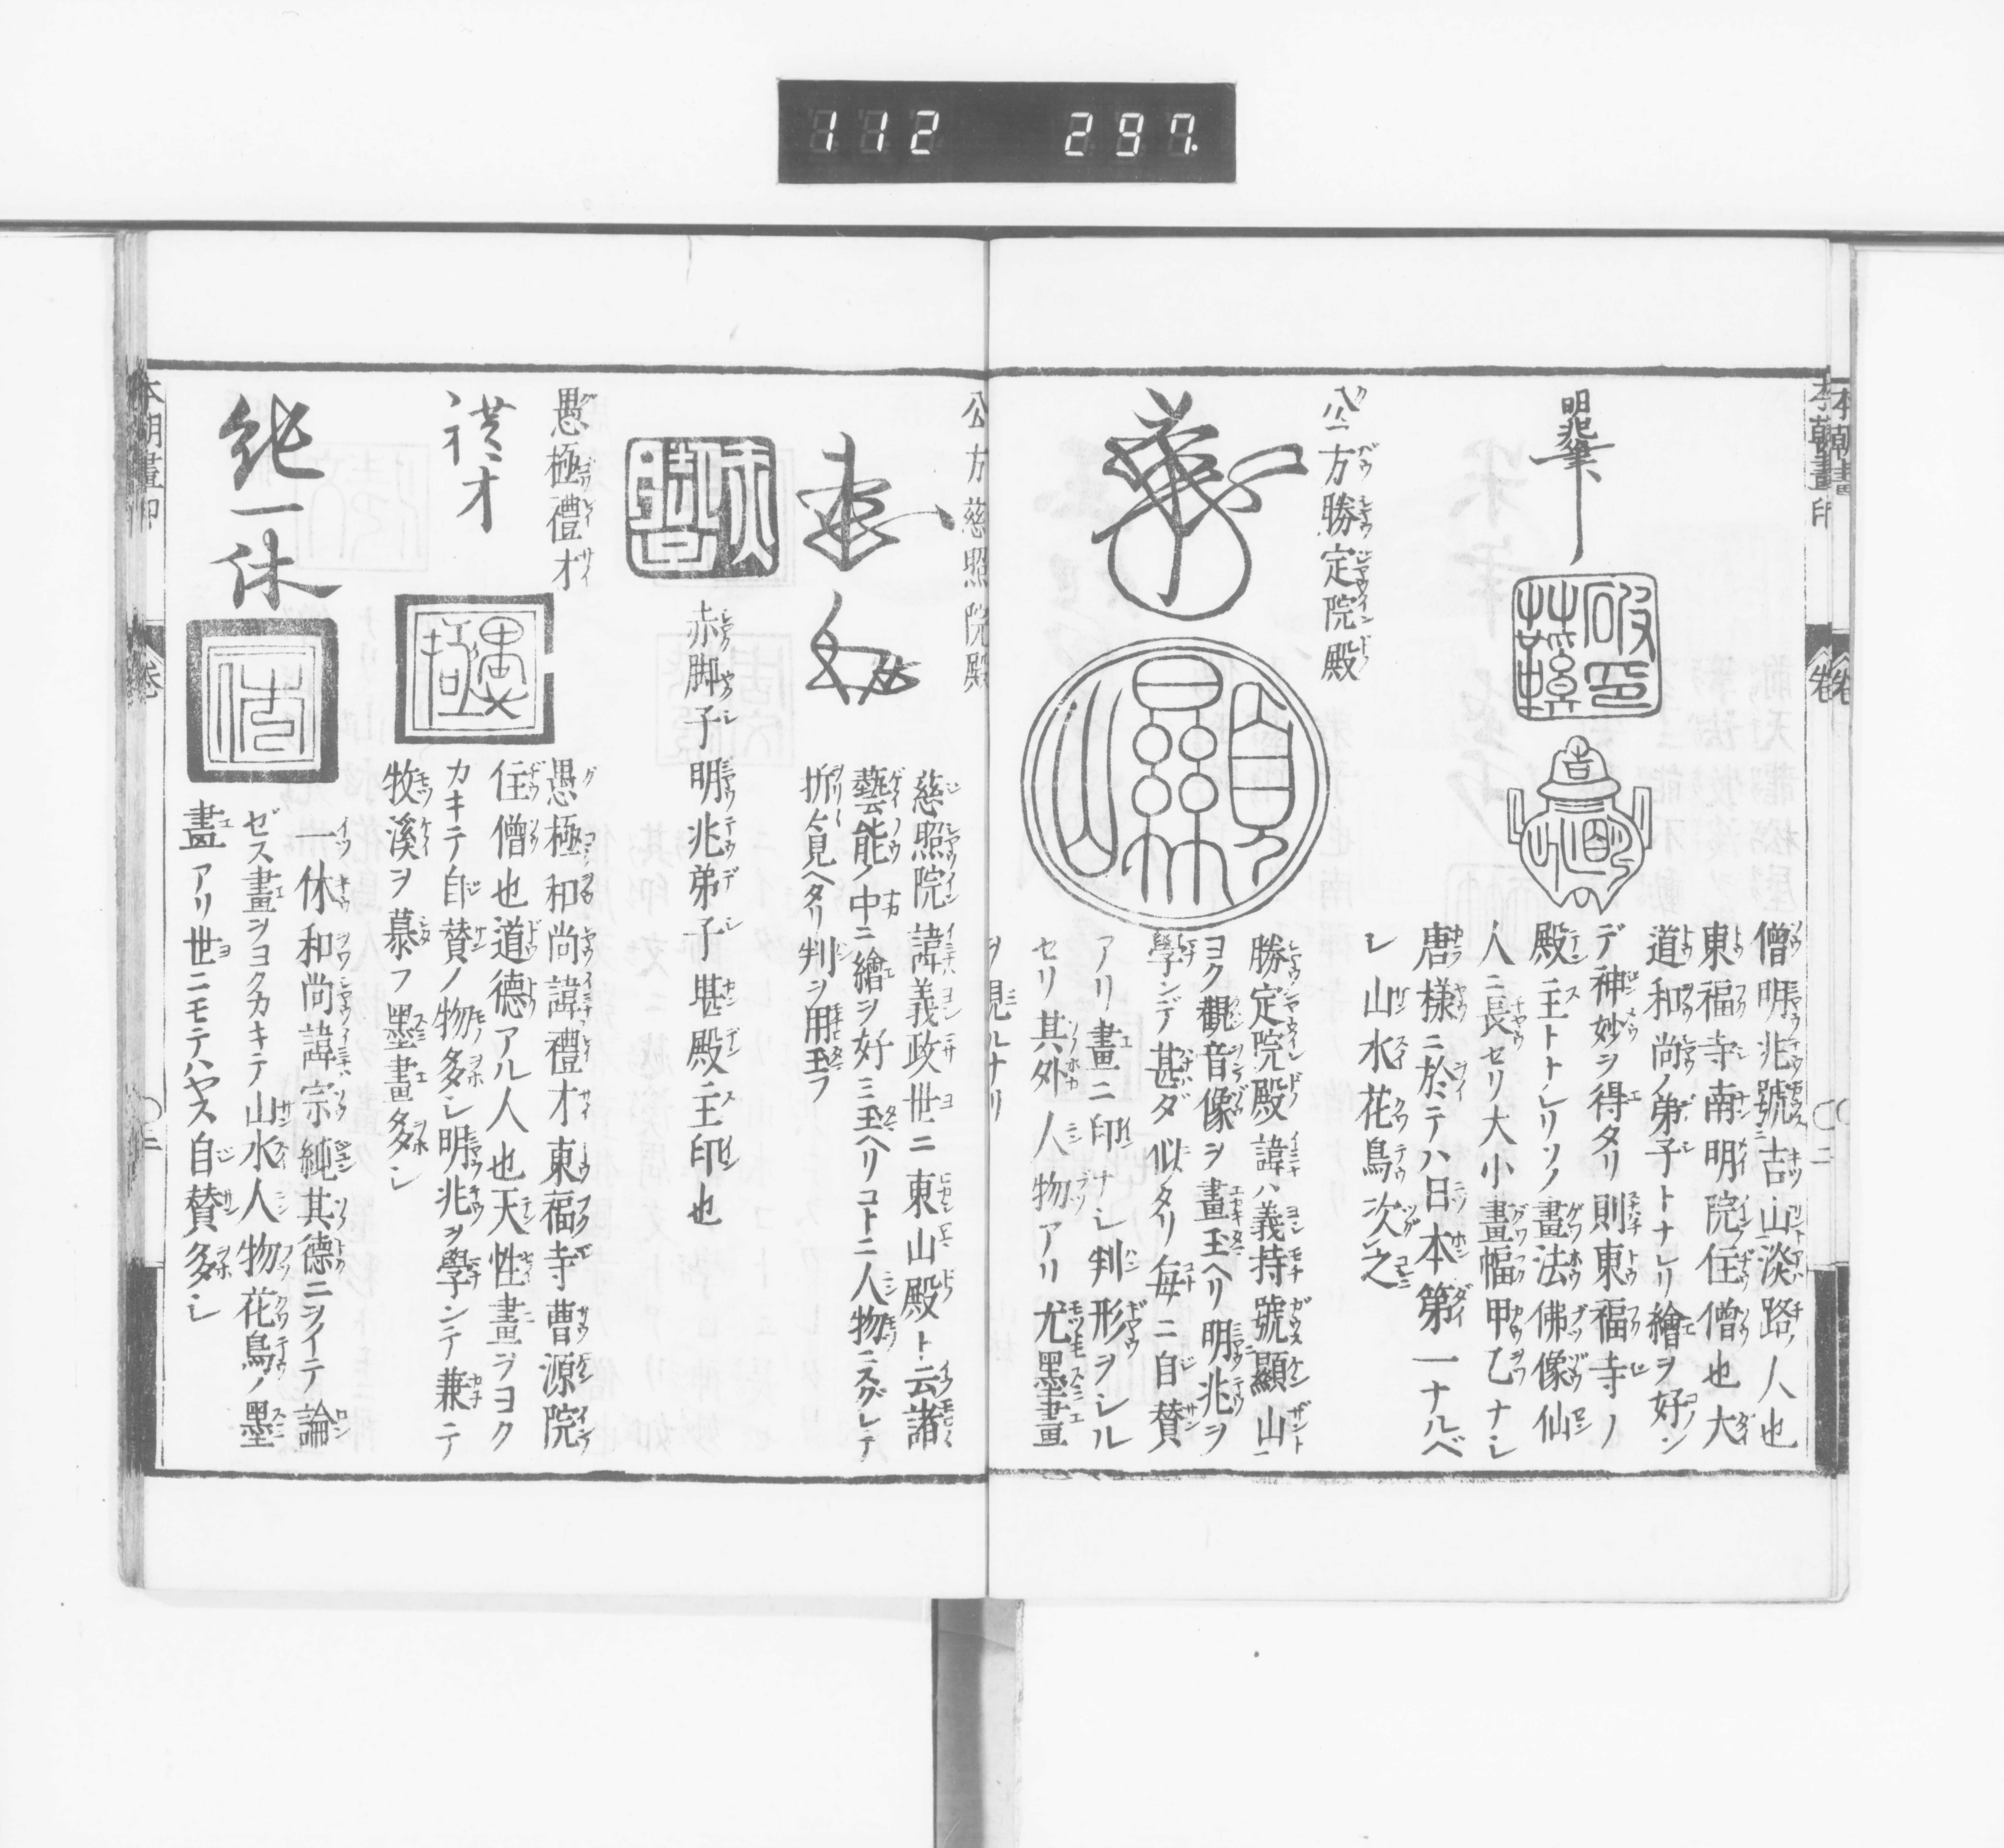 112 297.
本朝畫印
僧明兆號吉山淡路ノ人也
東福寺南明院住僧也大
道和尚ノ弟子トナレリ繪ヲ好ン
デ神妙ヲ得タリ則東福寺ノ
殿主トトレリソノ畫法佛像仙
人ニ長セリ大小畫幅甲乙ナシ
唐樣ニ於テハ日本第一ナルベ
シ山水花鳥次之
公方勝定院殿
勝定院殿諱ハ義持號顯山一
ヨク觀音像ヲ畫玉ヘリ明兆ヲ
學ンデ甚ダ似タリ毎ニ自賛
アリ畫ニ印ナシ判形ヲシル
セリ其外人物アリ尤墨畫
ヲ見ルナリ
公方慈照院殿
慈照院諱義政世ニ東山殿ト云諸
藝能ノ中ニ繪ヲ好ミ玉ヘリコトニ人物ニスグレテ
折〻見ヘタリ判ヲ用玉フ
赤脚子明兆弟子堪殿主印也
愚極禮才
禮才
愚極和尚諱禮才東福寺曹源院
住僧也道德アル人也天性畫ヲヨク
カキテ自賛ノ物多シ明兆ヲ學ンテ兼テ
牧溪ヲ慕フ墨畫多シ
純一休
一休和尚諱宗純其德ニヲイテ論
ゼス畫ヲヨクカキテ山水人物花鳥ノ墨
畫アリ世ニモテハヤス自賛多シ
本朝畫印